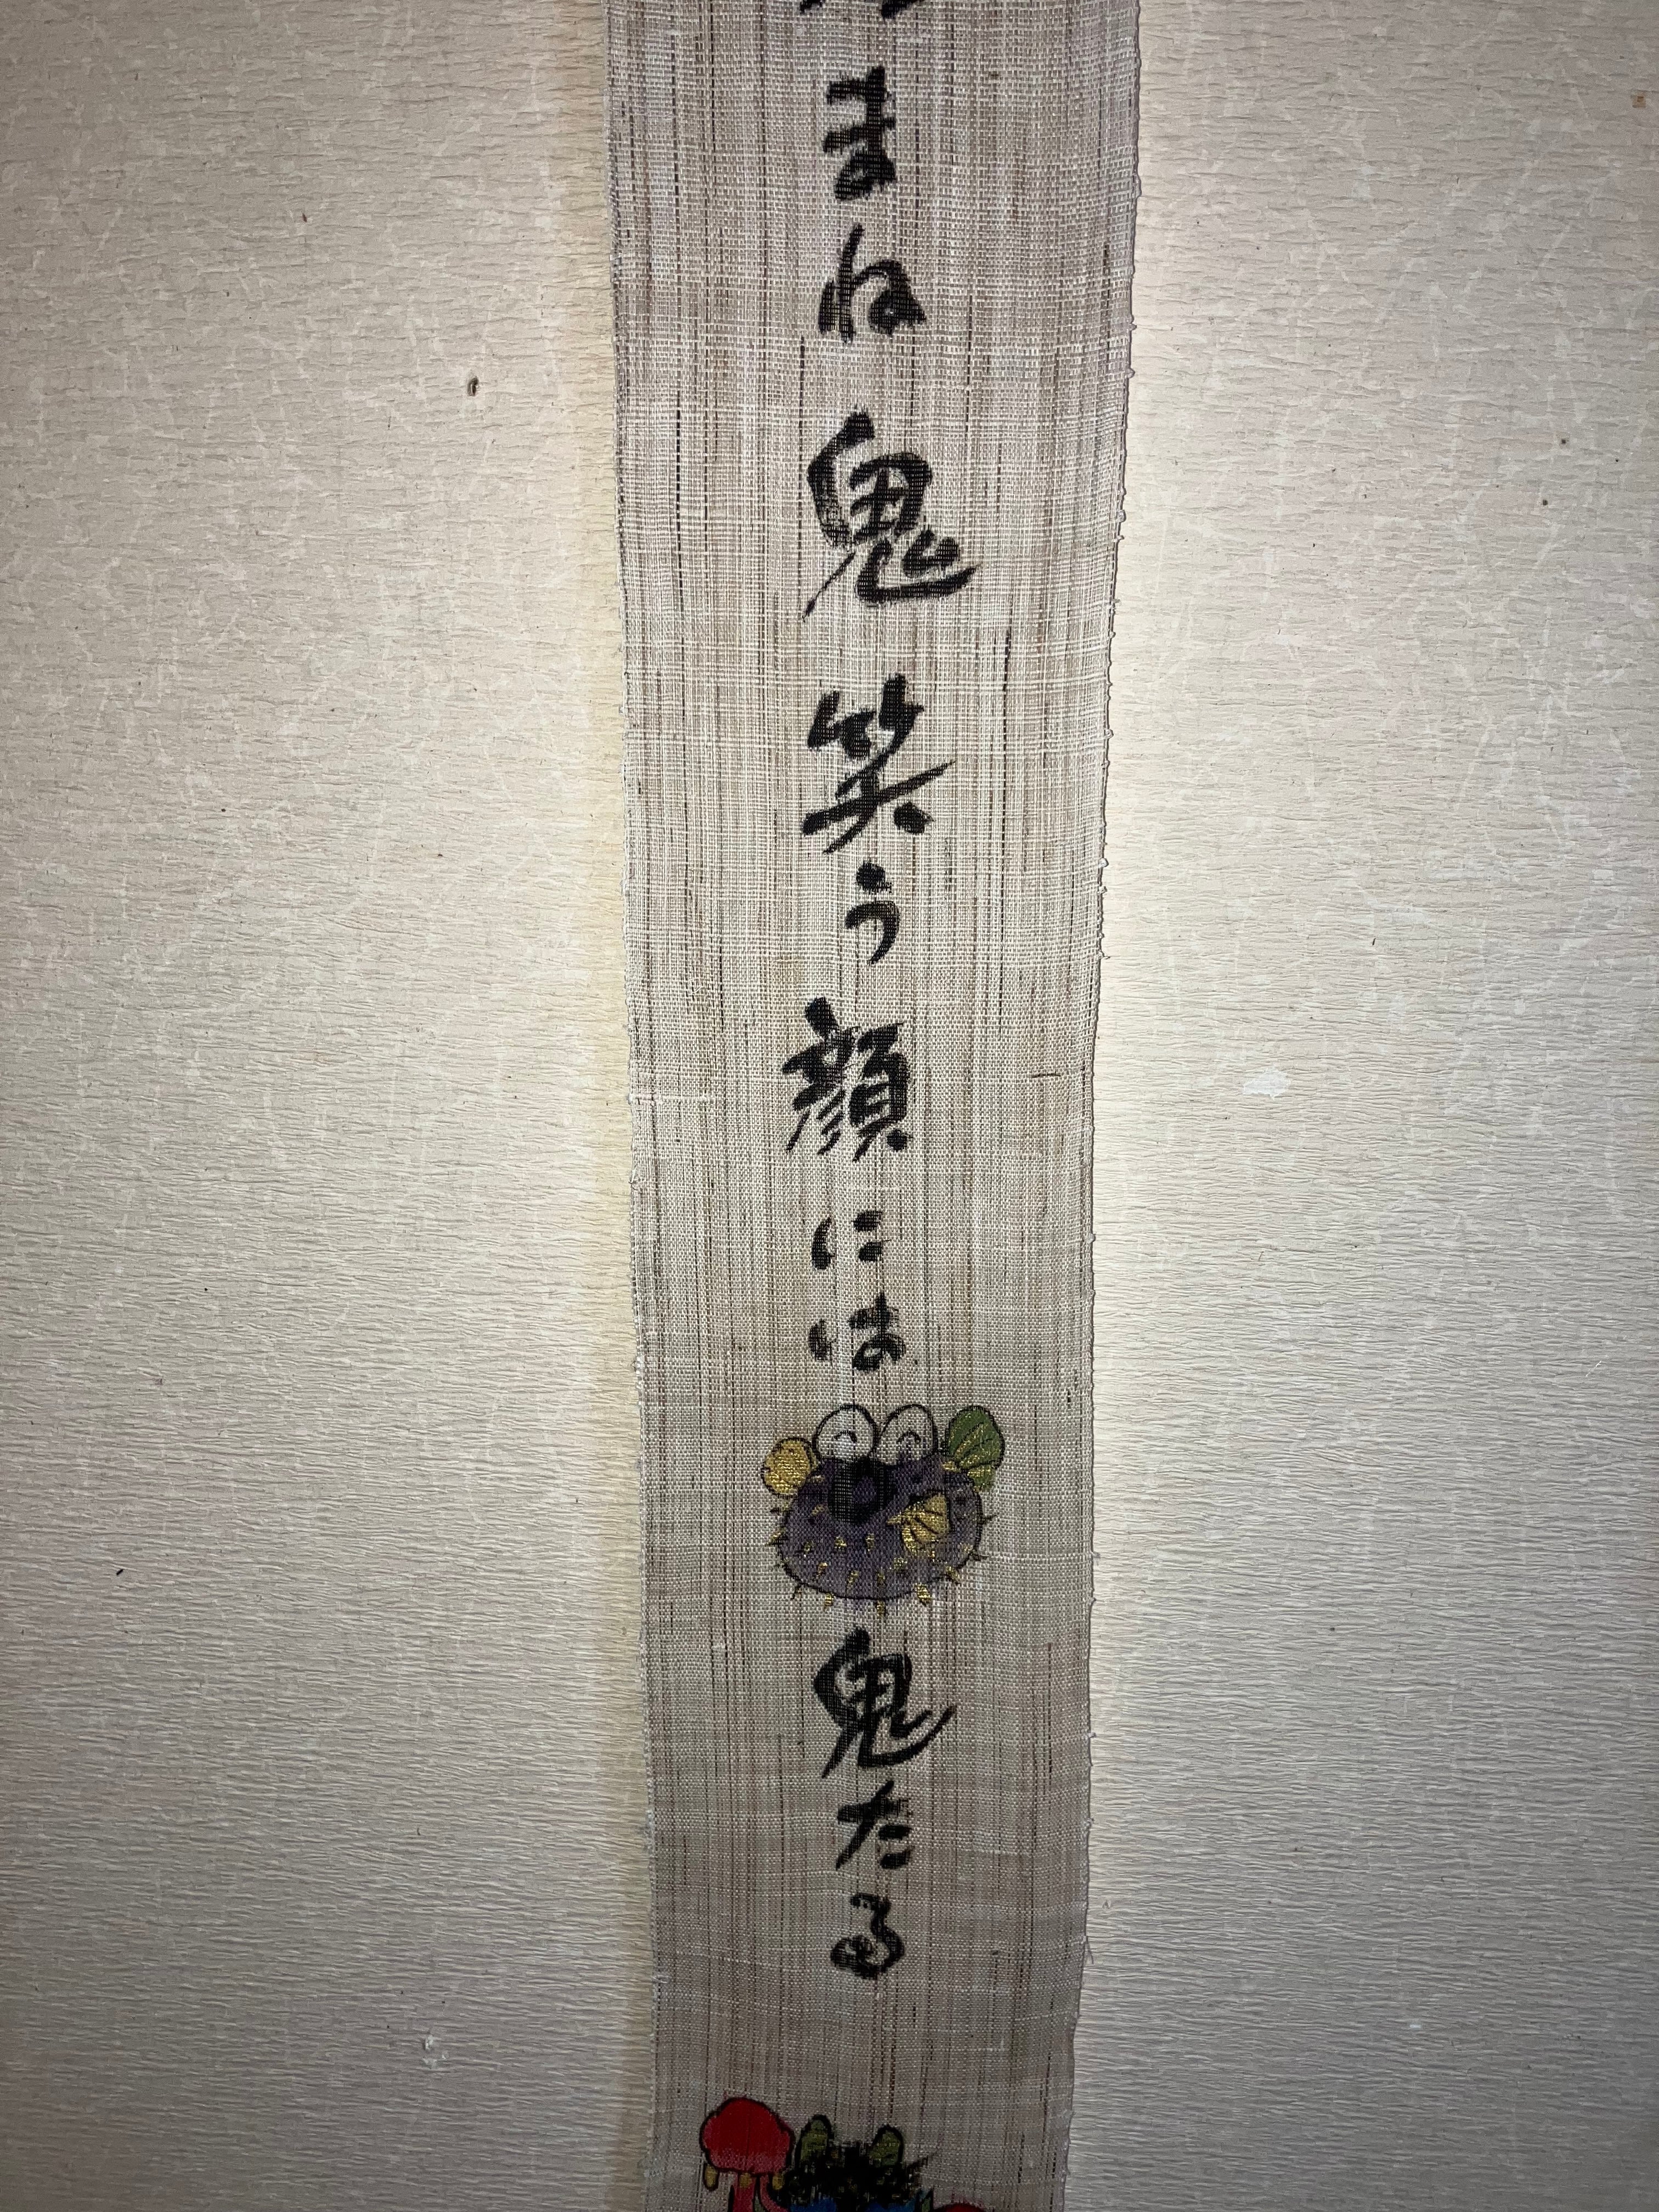 まね鬼笑う顔には鬼たる